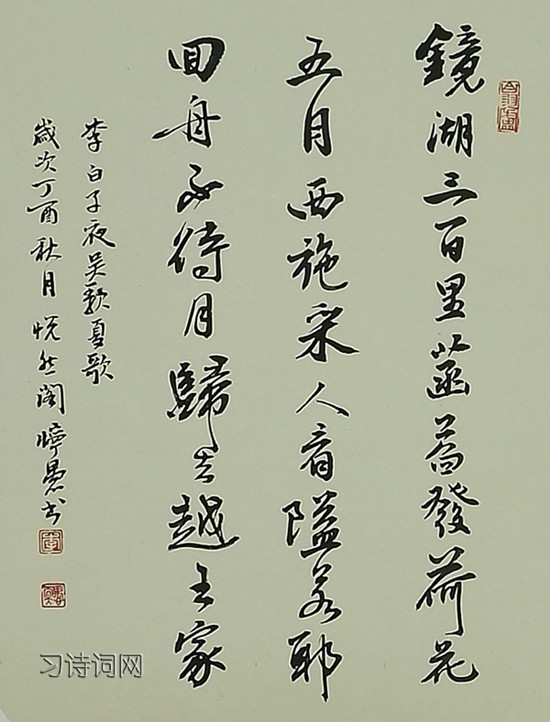 鏡湖三百里菡萏發荷花
五月西施采人看隘若耶
回舟不待月歸去越王家
李白子夜吴歌夏歌
歲次丁酉秋月悦然阁书
习诗词网